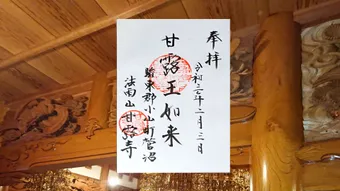 奉拝
令和三年二月三日
甘露王如来
駿東郡小山町菅沼
法雨山甘露寺